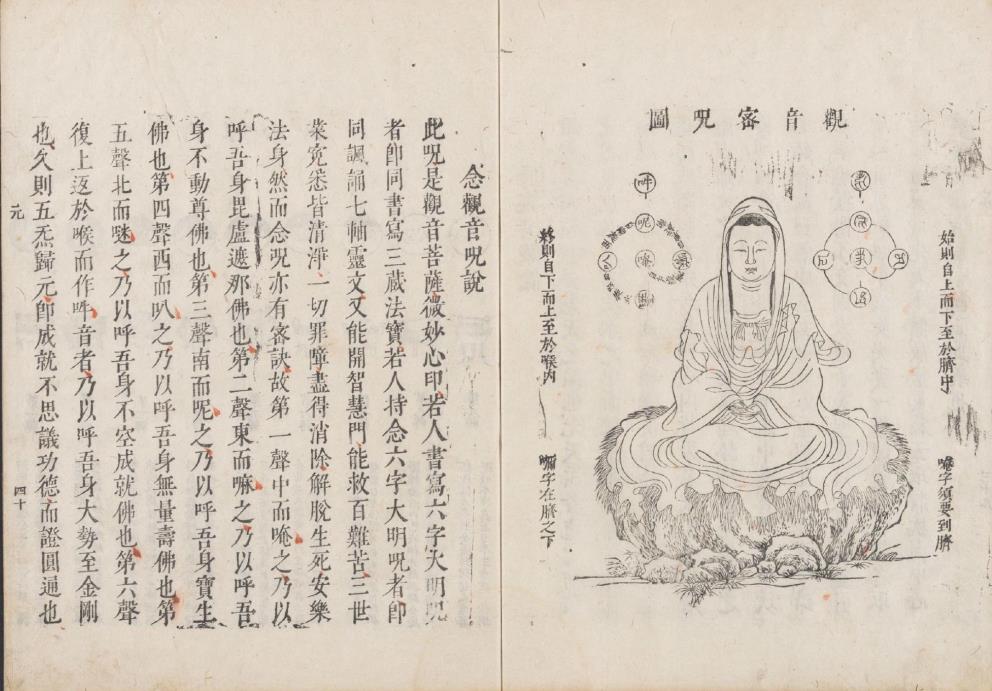 觀音密咒圖
始則自上而下至於臍中
唵字須要到臍
終則自下而上至於喉內
㘕字在臍之下
吽
呢
念觀音咒說
此咒是觀音菩薩微妙心印若人書寫六字大明咒
者卽同書寫三藏法寶若人持念六字大明咒者卽
同諷誦七軸靈文又能開智慧門能救百難苦三世
業冤悉皆清淨一切罪障盡得消除解脫生死安樂
法身然而念咒亦有密訣故第一聲中而唵之乃以
呼吾身毘盧遮那佛也第二聲東而嘛之乃以呼吾
身不動尊佛也第三聲南而呢之乃以呼吾身寶生
佛也第四聲西而叭之乃以呼吾身無量壽佛也第
五聲北而𠸪之乃以呼吾身不空成就佛也第六聲
復上返於喉而作吽音者乃以呼吾身大勢至金剛
也久則五炁歸元卽成就不思議功德而證圓通也
元
四十